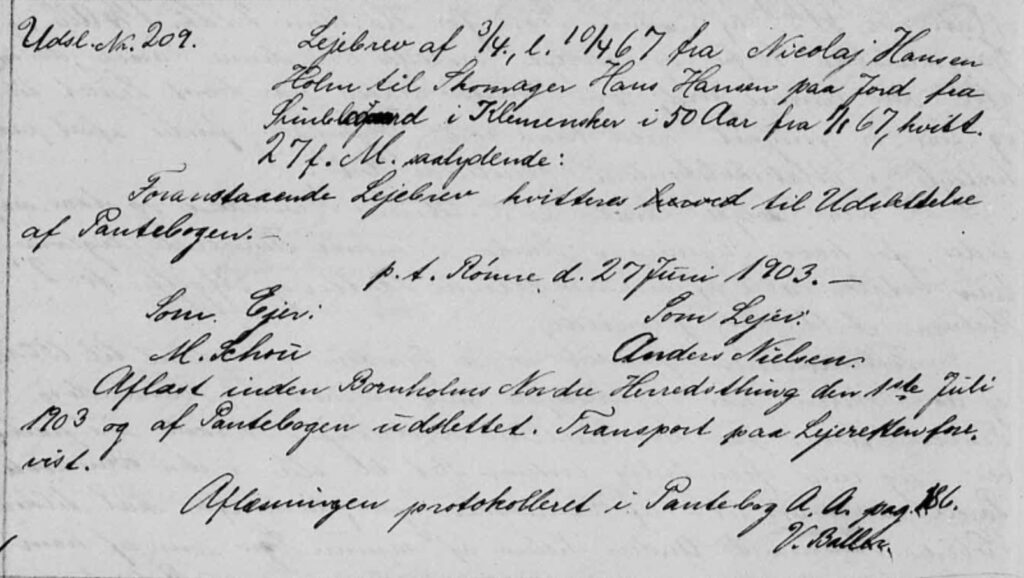 Udsl. Nr. 209. Lejebrev af 3/4, l. 10/4 67 fra Nicolaj Hansen
Holm til Skomager Hans Hansen paa Jord fra
i Klemensker i 50 Aar fra 1/1 67, kvitt.
27 f. M. saalydende:
Foranstaaende Lejebrev kvitteres herved til Udslettelse
af Pantebogen. -
p. t. Rønne, d. 27 Juni 1903. -
Som Ejer: Som Lejer:
M. Schou Anders Nielsen
Aflæst inden Bornholms Nordre Herredsthing den 1ste Juli
1903 og af Pantebogen udslettet. Transport paa Lejeretten fore-
vist.
Aflæsningen protokolleret i Pantebog A. A. pag. 186.
V.